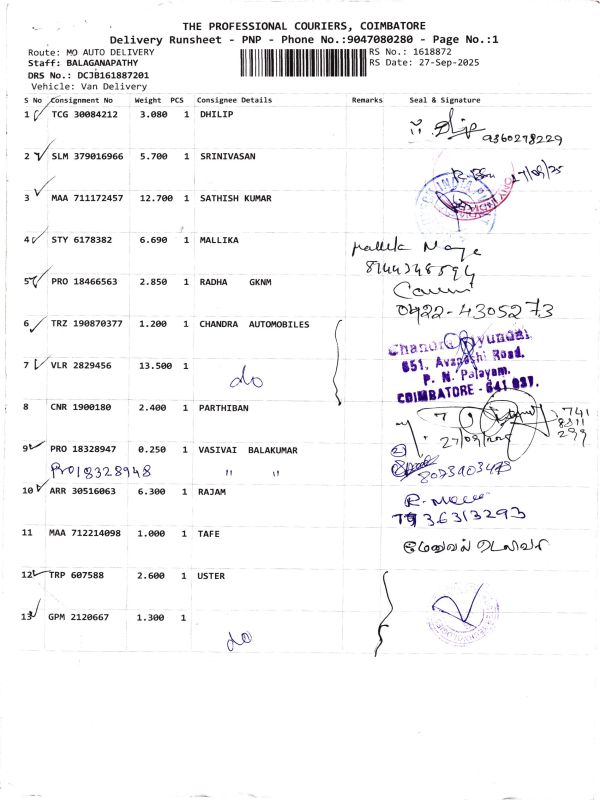 THE PROFESSIONAL COURIERS, COIMBATORE
Delivery Runsheet - PNP - Phone No.:9047080280 - Page No.:1
Route: MO AUTO DELIVERY RS No.: 1618872
Staff: BALAGANAPATHY RS Date: 27-Sep-2025
DRS No.: DCJB161887201
Vehicle: Van Delivery
S No Consignment No Weight PCS Consignee Details Remarks Seal & Signature
1 TCG 30084212 3.080 1 DHILIP
9360298229
2 SLM 379016966 5.700 1 SRINIVASAN
27/09/25
3 MAA 711172457 12.700 1 SATHISH KUMAR
4 STY 6178382 6.690 1 MALLIKA
Mallika
8144348594
5 PRO 18466563 2.850 1 RADHA GKNM
0422-4305273
6 TRZ 190870377 1.200 1 CHANDRA AUTOMOBILES
Chandra Hyundai
651, Avanashi Road,
P. N. Palayam,
COIMBATORE - 641 037.
7 VLR 2829456 13.500 1
do
8 CNR 1900180 2.400 1 PARTHIBAN
27/09/2025
9 PRO 18328947 0.250 1 VASIVAI BALAKUMAR
Pro18328948 " "
8073403473
10 ARR 30516063 6.300 1 RAJAM
7936313293
11 MAA 712214098 1.000 1 TAFE
12 TRP 607588 2.600 1 USTER
13 GPM 2120667 1.300 1
do